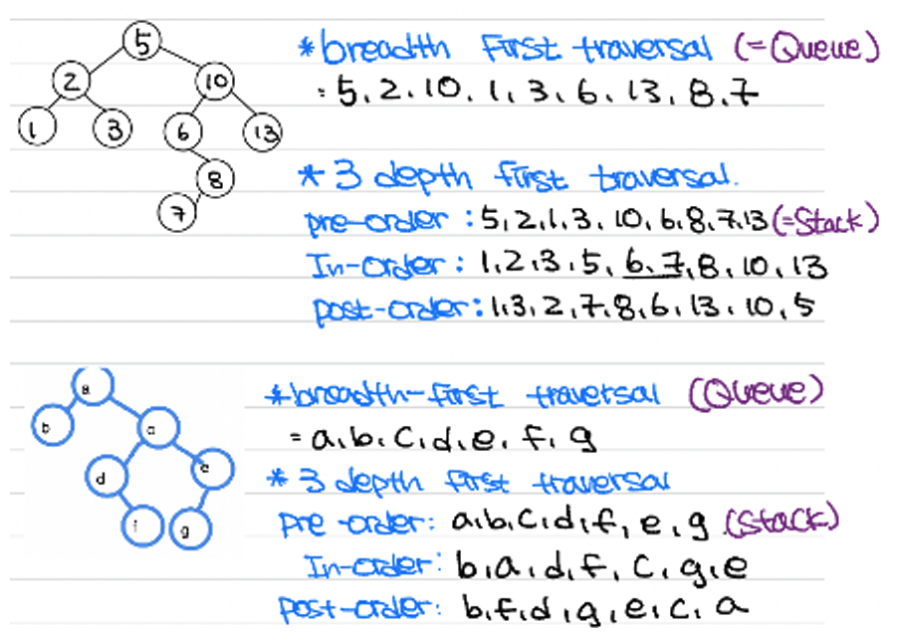 5
* breadth First traversal (=Queue)
2 10
: 5, 2, 10, 1, 3, 6, 13, 8, 7
1 3 6 13
8
* 3 depth first traversal.
7
pre-order : 5, 2, 1, 3, 10, 6, 8, 7, 13 (=Stack)
In-order : 1, 2, 3, 5, 6, 7, 8, 10, 13
post-order : 1, 3, 2, 7, 8, 6, 13, 10, 5
a
* breadth-first traversal (Queue)
b c
= a, b, c, d, e, f, g
d e
* 3 depth first traversal
f g
pre-order: a, b, c, d, f, e, g (Stack)
In-order: b, a, d, f, c, g, e
post-order: b, f, d, g, e, c, a